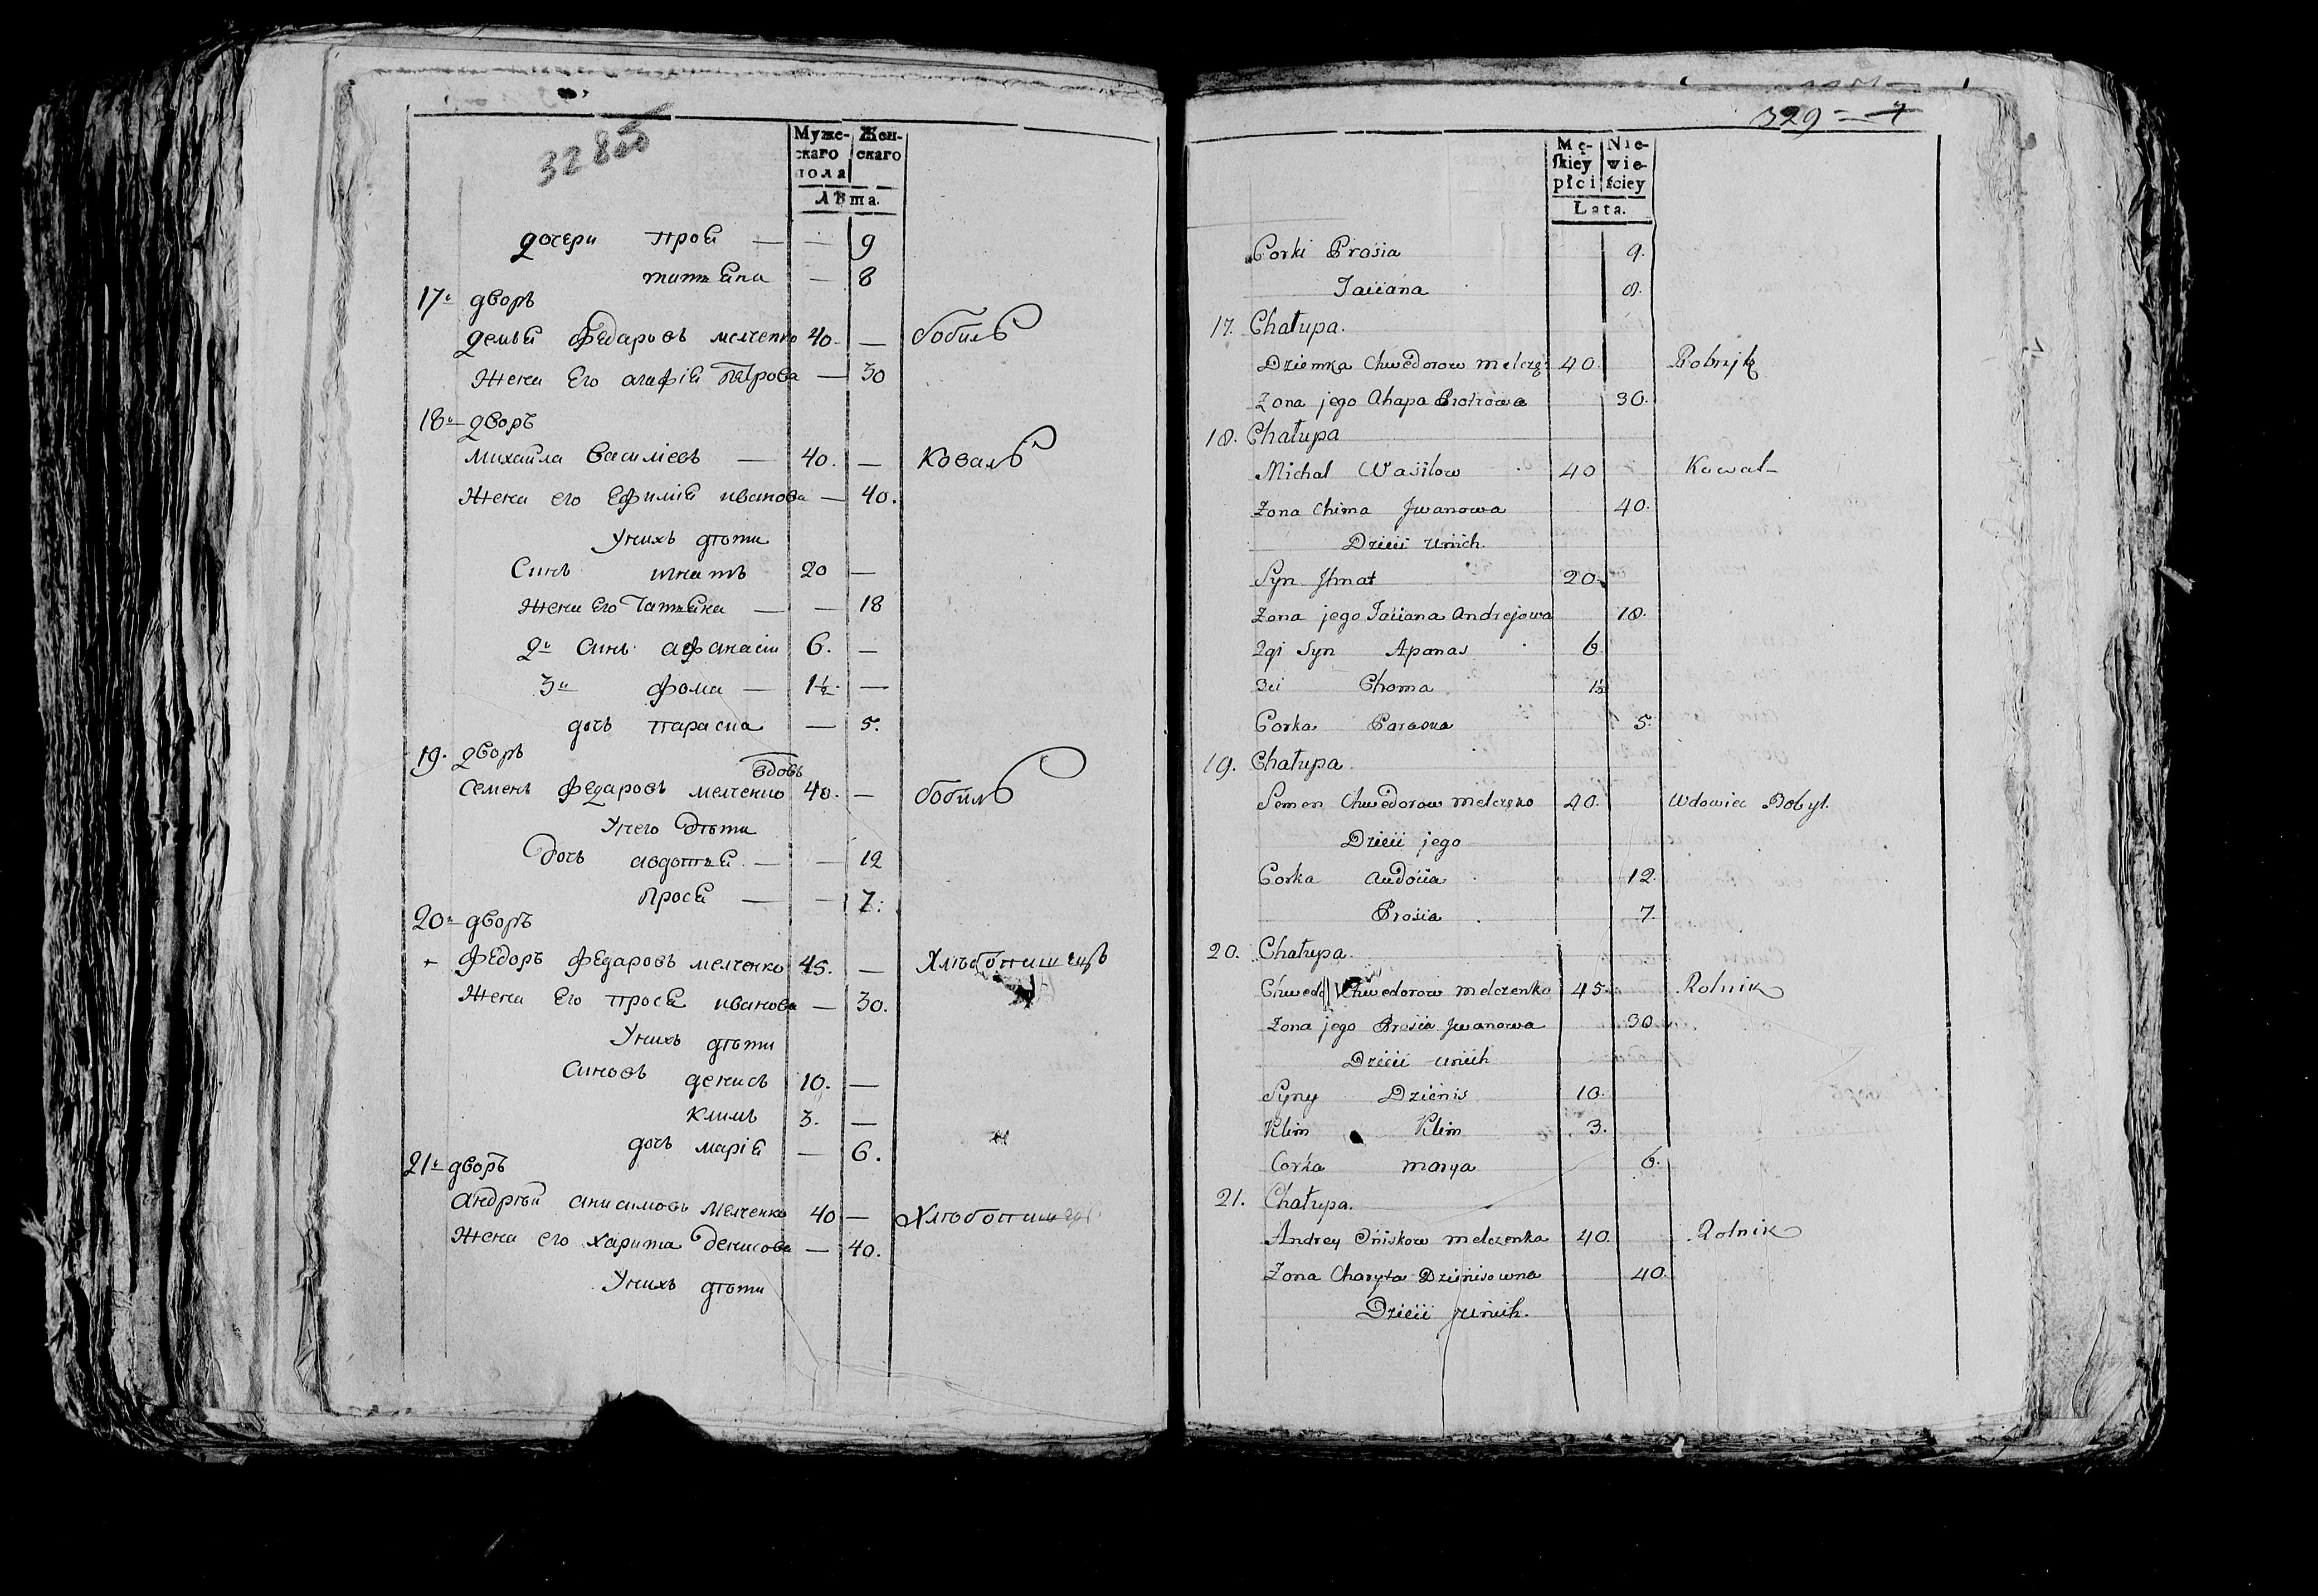 328об
Муже-
скаго
пола
Жен-
скаго
Лѣта.
дочери прося — — 9
татьяна — 8
17й дворъ
демья федаровъ мелченко 40 — бобиль
Жена Его агафія петрова — 30
18й дворъ
михайла васильевъ — 40. — Коваль
Жена его Ефимія иванова — 40.
Унихъ дѣти
Синъ игнатъ 20 —
Жена Его татьяна — — 18
2й Синъ афанасій 6. —
3й фома — 1½. —
дочъ параска — 5.
19. дворъ
вдовъ
Семенъ федаровъ мелченко 40. — бобиль
Унего дѣти
дочъ авдотья — — 12
прося — — 7.
20й дворъ
+ федоръ федаровъ мелченко 45. — Хлѣбопашецъ
Жена Его прося иванова — 30.
Унихъ дѣти
Синовъ денисъ 10. —
климъ 3. —
дочъ марія — 6.
21й дворъ
андрѣй анисимовъ мелченко 40 — Хлѣбопашецъ
Жена его харита денисова — 40.
Унихъ дѣти
329
Mę-
skiey
płci
Nie-
wie-
ściey
Lata.
Corki Prosia 9.
Taciana 8.
17. Chałupa.
Dziemka Chwedorow Melcz 40
Zona jego Ahapa Piotrowa 30.
18. Chałupa
Michal Wasilow 40 Kowal
Zona Chima Jwanowa 40.
Dzieci unich.
Syn Jhnat 20.
Zona jego Taciana Andrejowa 18.
2gi Syn Apanas 6
3ci Choma 1½
Corka Paraska 5.
19. Chałupa.
Semen Chwedorow Melczeko 40. Wdowiec Bobyl.
Dzieci jego
Corka Audocia 12.
Prosia 7.
20. Chałupa.
Chwedo Chwedorow Melczenko 45. Rolnik
Zona jego Prosia Jwanowa 30
Dzieci unich
Syny Dzienis 10.
Klim Klim 3.
Corka Marya 6.
21. Chałupa.
Andrey Oniskow Melczenka 40. Rolnik
Zona Charyta Dzienisowna 40.
Dzieci unich.